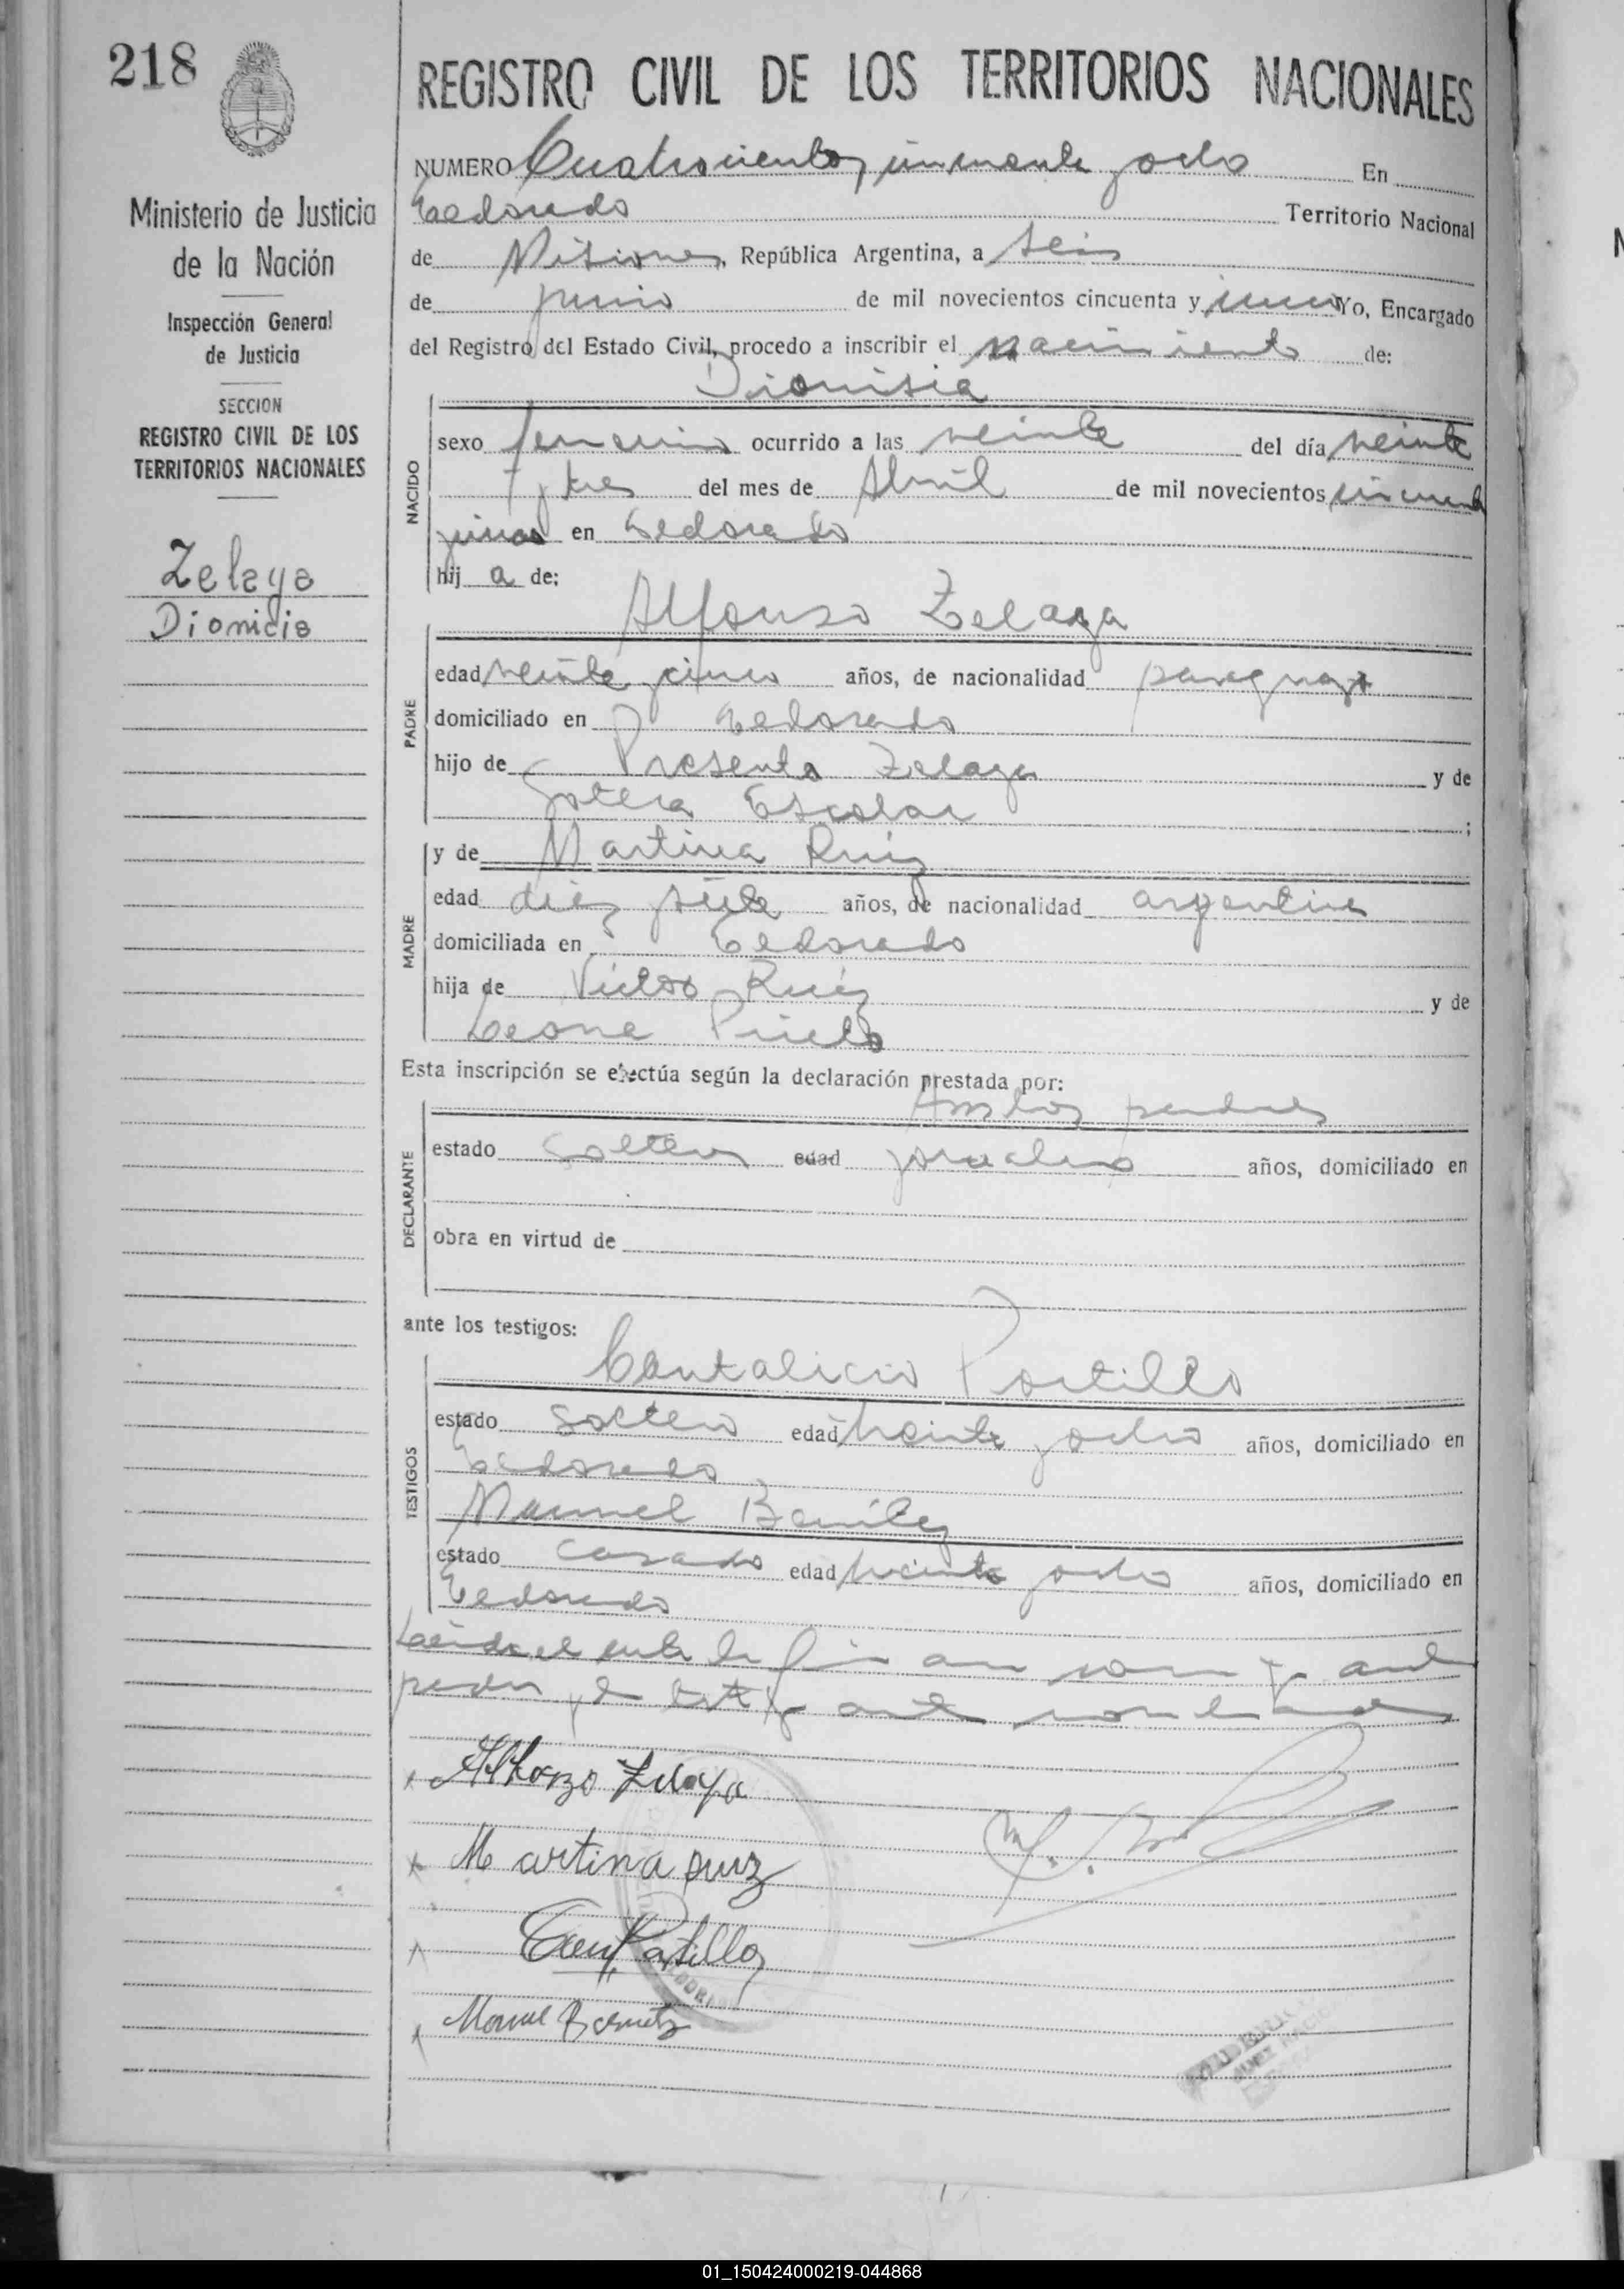 218
REGISTRO CIVIL DE LOS TERRITORIOS NACIONALES
Ministerio de Justicia
de la Nación
Inspección General
de Justicia
SECCION
REGISTRO CIVIL DE LOS
TERRITORIOS NACIONALES
Zelaya
Dionicia
NUMERO Cuatrocientos cincuenta y ocho En
Eldorado Territorio Nacional
de Misiones, República Argentina, a seis
de junio de mil novecientos cincuenta y uno Yo, Encargado
del Registro del Estado Civil, procedo a inscribir el nacimiento de:
Dionisia
NACIDO
sexo femenino ocurrido a las veinte del día veinte
y tres del mes de Abril de mil novecientos cincuenta
y uno en Eldorado
hij a de:
Alfonso Zelaya
PADRE
edad veinte y cinco años, de nacionalidad paraguayo
domiciliado en Eldorado
hijo de Presento Zelaya y de
Sotera Escobar ;
MADRE
y de Martina Ruiz
edad diez y siete años, de nacionalidad argentina
domiciliada en Eldorado
hija de Victor Ruiz y de
Leona Prieto
Esta inscripción se efectúa según la declaración prestada por:
Ambos padres
DECLARANTE
estado solteros edad jornalero años, domiciliado en
obra en virtud de
ante los testigos:
Cantalicio Portillo
TESTIGOS
estado soltero edad veinte y ocho años, domiciliado en
Eldorado
Manuel Benitez
estado casado edad y ocho años, domiciliado en
Eldorado
Leida el acta la
padres y
Alfonzo Zelaya
Martina Ruiz
Cant. Portillo
Manuel Benitez
01_150424000219-044868